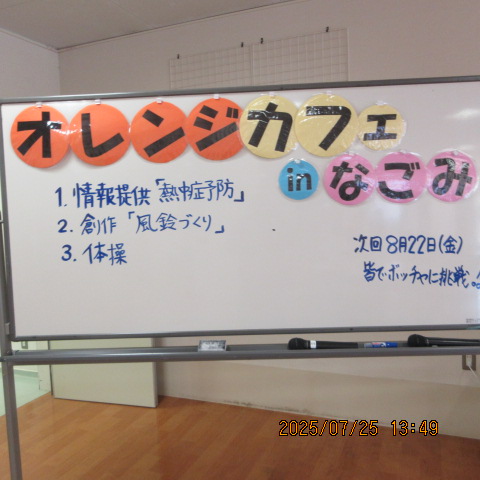 オレンジカフェ
in なごみ
1. 情報提供「熱中症予防」
2. 創作「風鈴づくり」
3. 体操
次回 8月22日(金)
皆でボッチャに挑戦!
2025/07/25 13:49